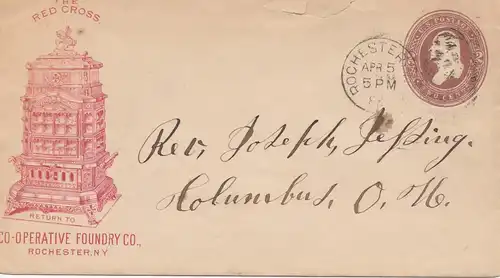 THE
RED CROSS.
RETURN TO
CO-OPERATIVE FOUNDRY CO.,
ROCHESTER, N.Y.
ROCHESTER
APR 5
5 PM
U.S. POSTAGE
Rev, Joseph, Jessing.
Kolumbus, O. H.